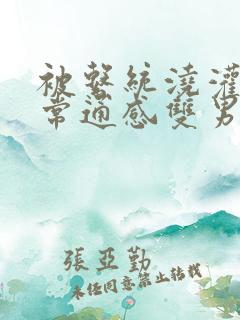 被繫統澆灌
常通感雙男
張亞勤
未經同意禁止轉載